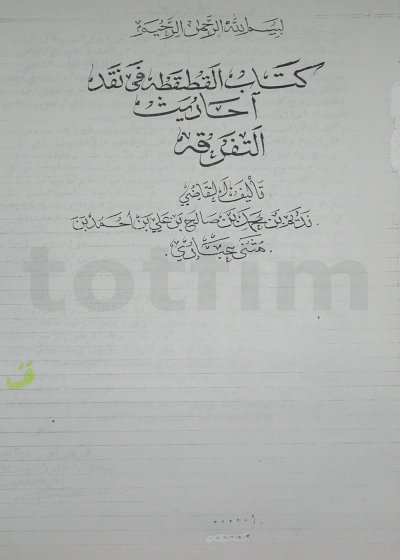 بسم الله الرحمن الرحيم
كتاب القطقطه في نقد
أحاديث
التفرقه
تأليف القاضي
بن محمد بن صالح بن علي بن أحمد بن
مثنى جباري.
totfim